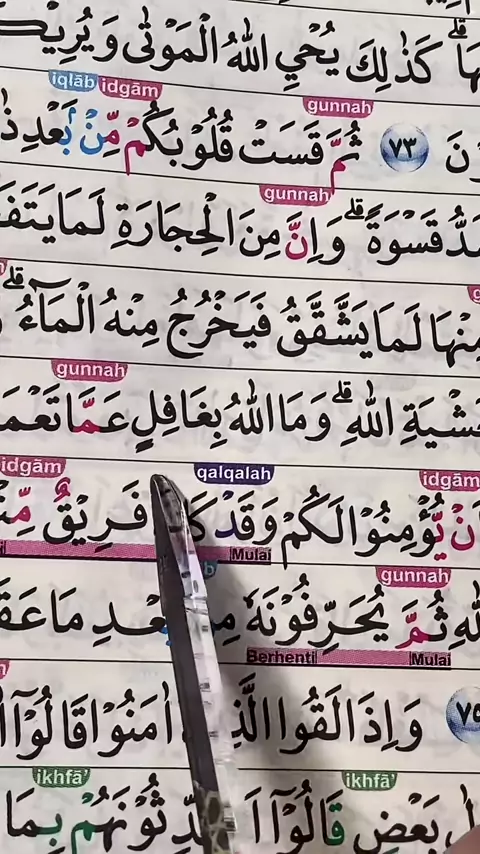 كَذٰلِكَ يُحْيِ اللّٰهُ الْمَوْتٰى وَيُرِيْكُ
iqlāb idgām gunnah
٧٣ ثُمَّ قَسَتْ قُلُوْبُكُمْ مِّنْۢ بَعْدِ
gunnah
قَسْوَةً ۗ وَاِنَّ مِنَ الْحِجَارَةِ لَمَا يَتَفَ
مِنْهَا لَمَا يَشَّقَّقُ فَيَخْرُجُ مِنْهُ الْمَاۤءُ ۗ
gunnah
خَشْيَةِ اللّٰهِ ۗ وَمَا اللّٰهُ بِغَافِلٍ عَمَّا تَعْمَ
idgām qalqalah idgām
يُّؤْمِنُوْا لَكُمْ وَقَدْ فَرِيْقٌ مِّنْ
Mulai gunnah
ثُمَّ يُحَرِّفُوْنَهٗ بَعْدِ مَا عَقَ
Berhenti Mulai
٧٥ وَاِذَا لَقُوا اٰمَنُوْا قَالُوْٓا
ikhfā’ ikhfā’
بَعْضٍ قَالُوْٓا بِمَا